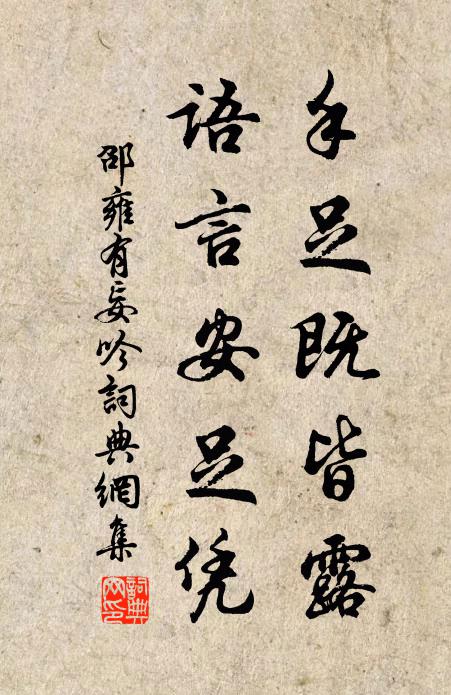 手足既皆露
语言安足凭
邵雍有妄吟詞典網集
詞典网印